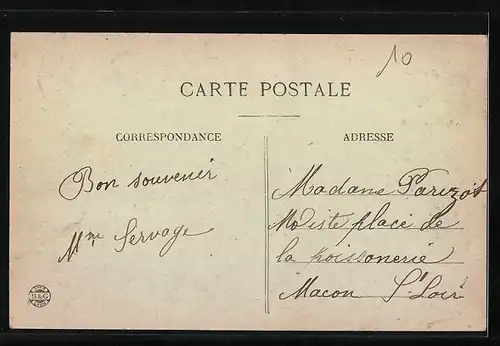 10
CARTE POSTALE
CORRESPONDANCE
ADRESSE
Bon souvenir
Mme Servage
Madame Parizot
Modiste place de
la poissonerie
Macon S. Loir
B&G